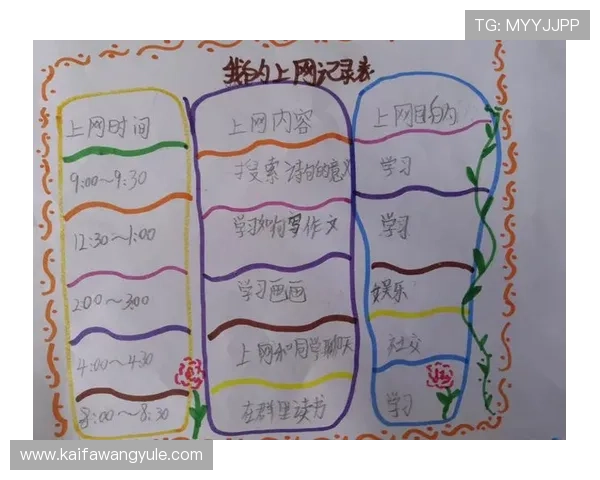 TG: MYYJJPP
我的上网记录表
上网时间 上网内容 上网目的
9:00~9:30 搜索诗句的意义 学习
12:30~1:00 学习如何写作文 学习
2:00~3:00 学习画画 娱乐
4:00~4:30 上网和同学聊天 社交
8:00~8:30 在群里读书 学习
www.kaifawangyule.com